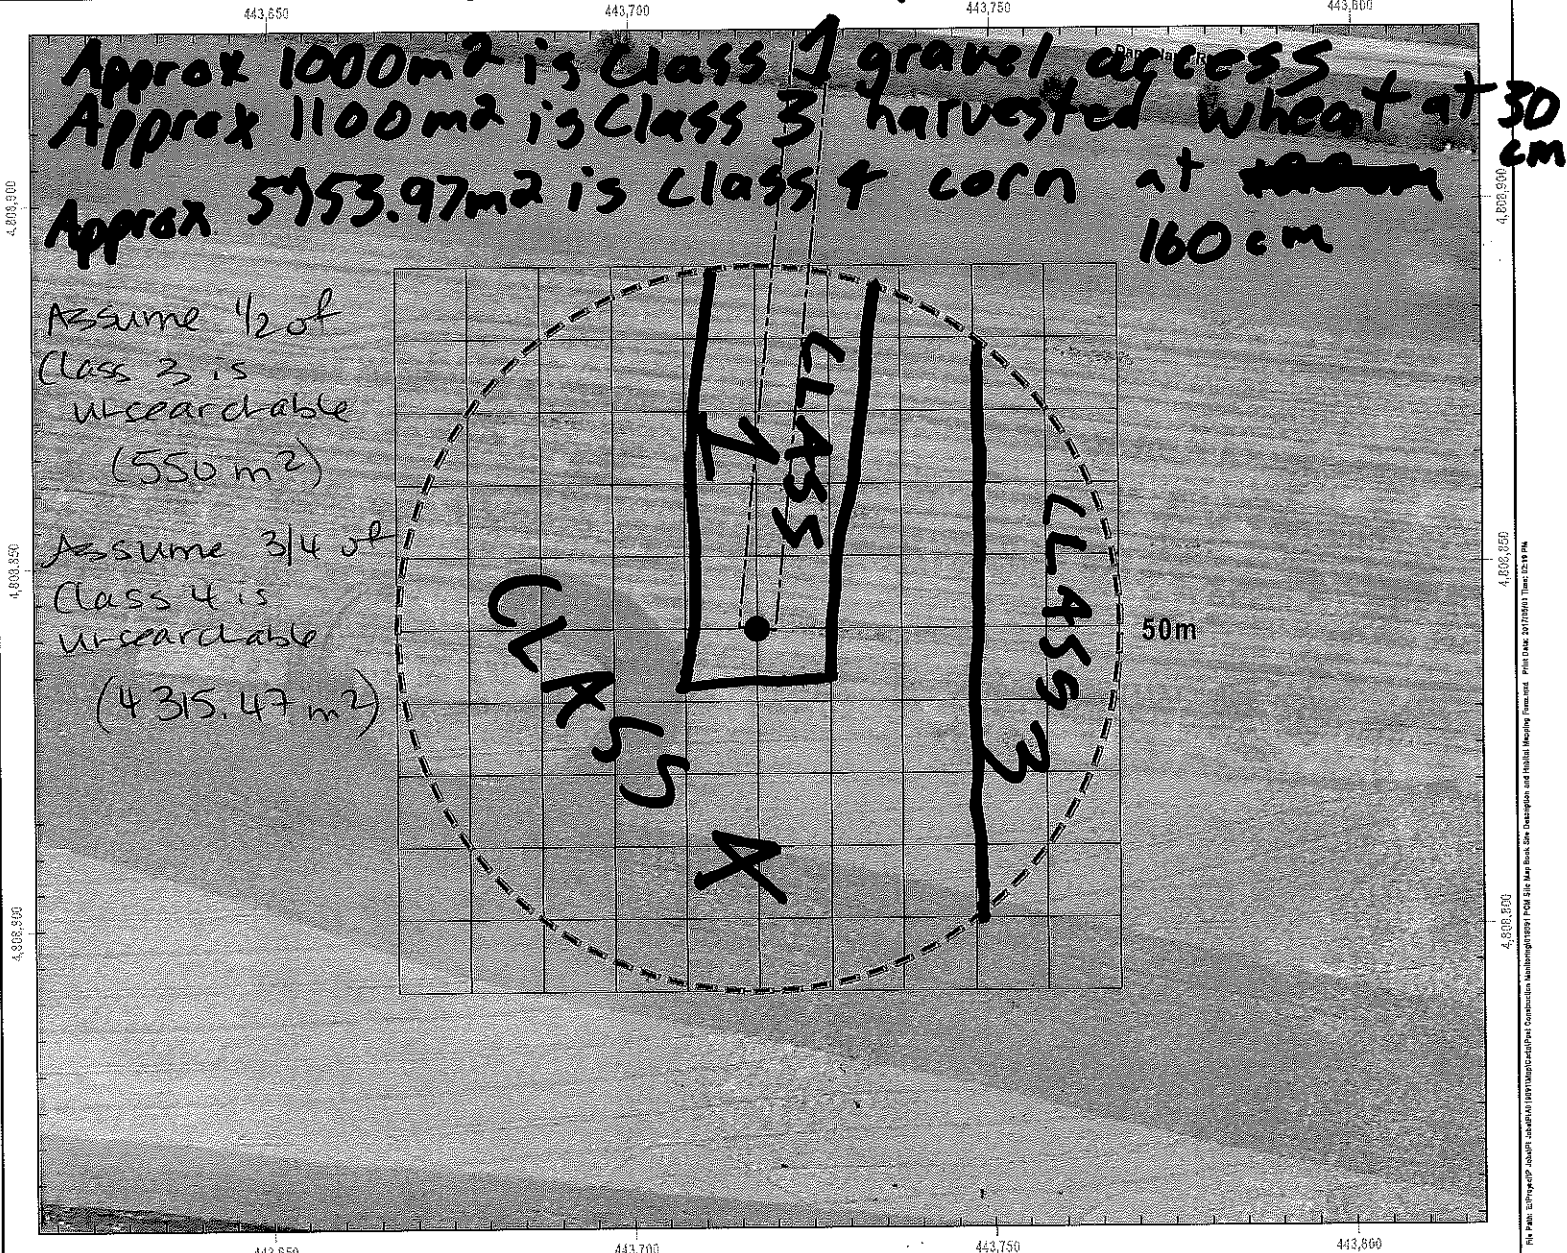 443,650 443,700 443,750 443,800
Approx 1000m2 is Class 1 gravel access
Approx 1100m2 is Class 3 harvested wheat at 30
cm
Approx 5753.97m2 is Class 4 corn at
160cm
4,808,900 4,808,900
Assume 1/2 of
Class 3 is
unsearchable
(550 m2)
Assume 3/4 of
Class 4 is
unsearchable
(4315.47 m2)
CLASS
1
CLASS 3
CLASS
4
50m
4,808,850 4,808,850
4,808,800 4,808,800
443,650 443,700 443,750 443,800
Print Date: 2017/05/03 Time: 02:19 PM